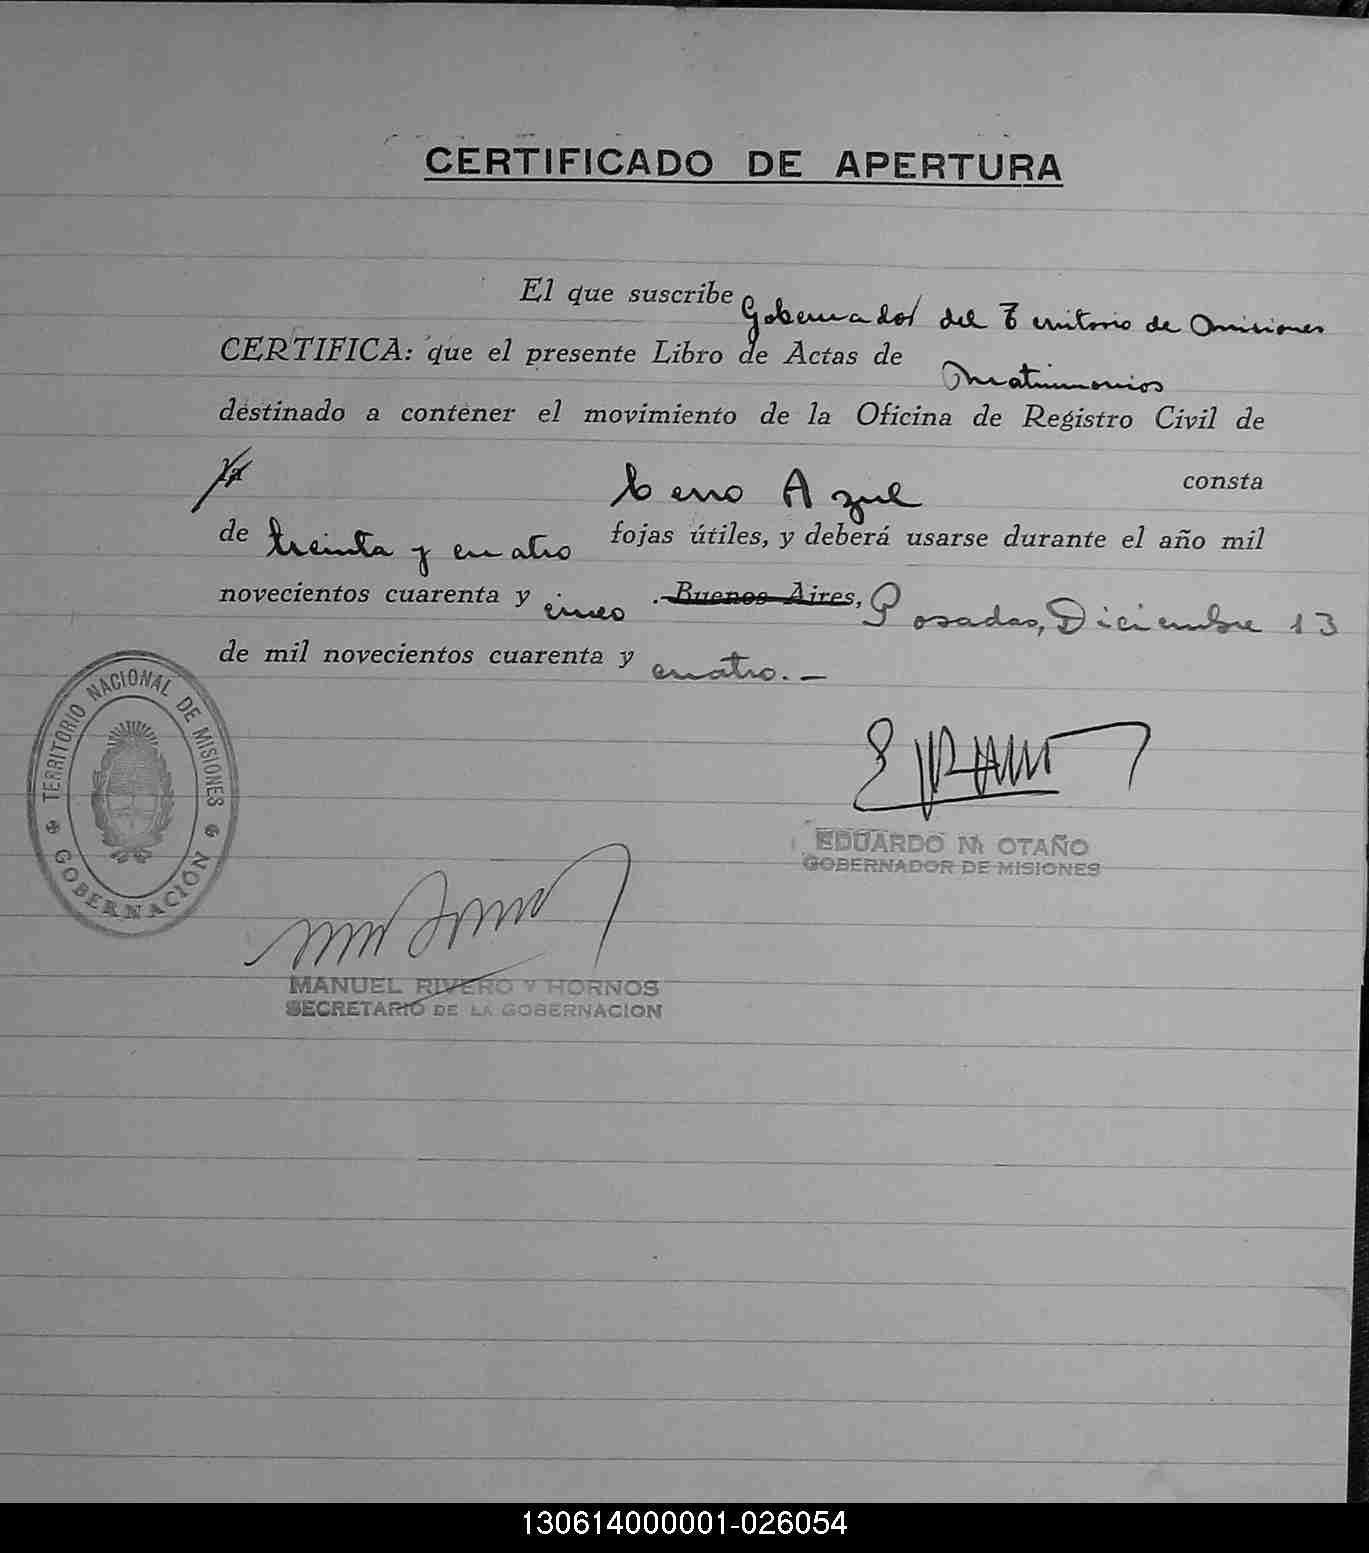 CERTIFICADO DE APERTURA
El que suscribe Gobernador del Territorio de Misiones
CERTIFICA: que el presente Libro de Actas de Matrimonios
destinado a contener el movimiento de la Oficina de Registro Civil de
Cerro Azul consta
de treinta y cuatro fojas útiles, y deberá usarse durante el año mil
novecientos cuarenta y cinco. Buenos Aires, Posadas, Diciembre 13
de mil novecientos cuarenta y cuatro.—
TERRITORIO NACIONAL DE MISIONES
GOBERNACIÓN
EDUARDO M OTAÑO
GOBERNADOR DE MISIONES
MANUEL RIVERO Y HORNOS
SECRETARIO DE LA GOBERNACION
130614000001-026054